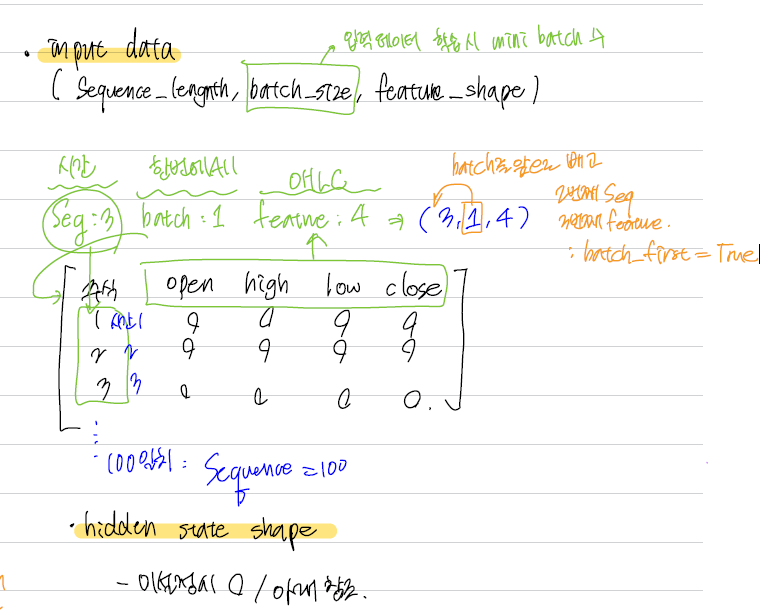 입력데이터 학습시 mini batch 수
· input data
( Sequence_lengnth, batch_size, feature_shape )
시간 한번에 OHLC
batch를 앞으로 빼고
Seq : 3 batch : 1 feature : 4 ⇒ ( 3, 1, 4 )
2번째 Seq
3번째 feature.
: batch_first = True
주식 open high low close
1 시간1 9 9 9 9
2 2 9 9 9 9
3 3 0 0 0 0.
100일치 : Sequence = 100
· hidden state shape
- 미설정시 0 / 아래 참조.